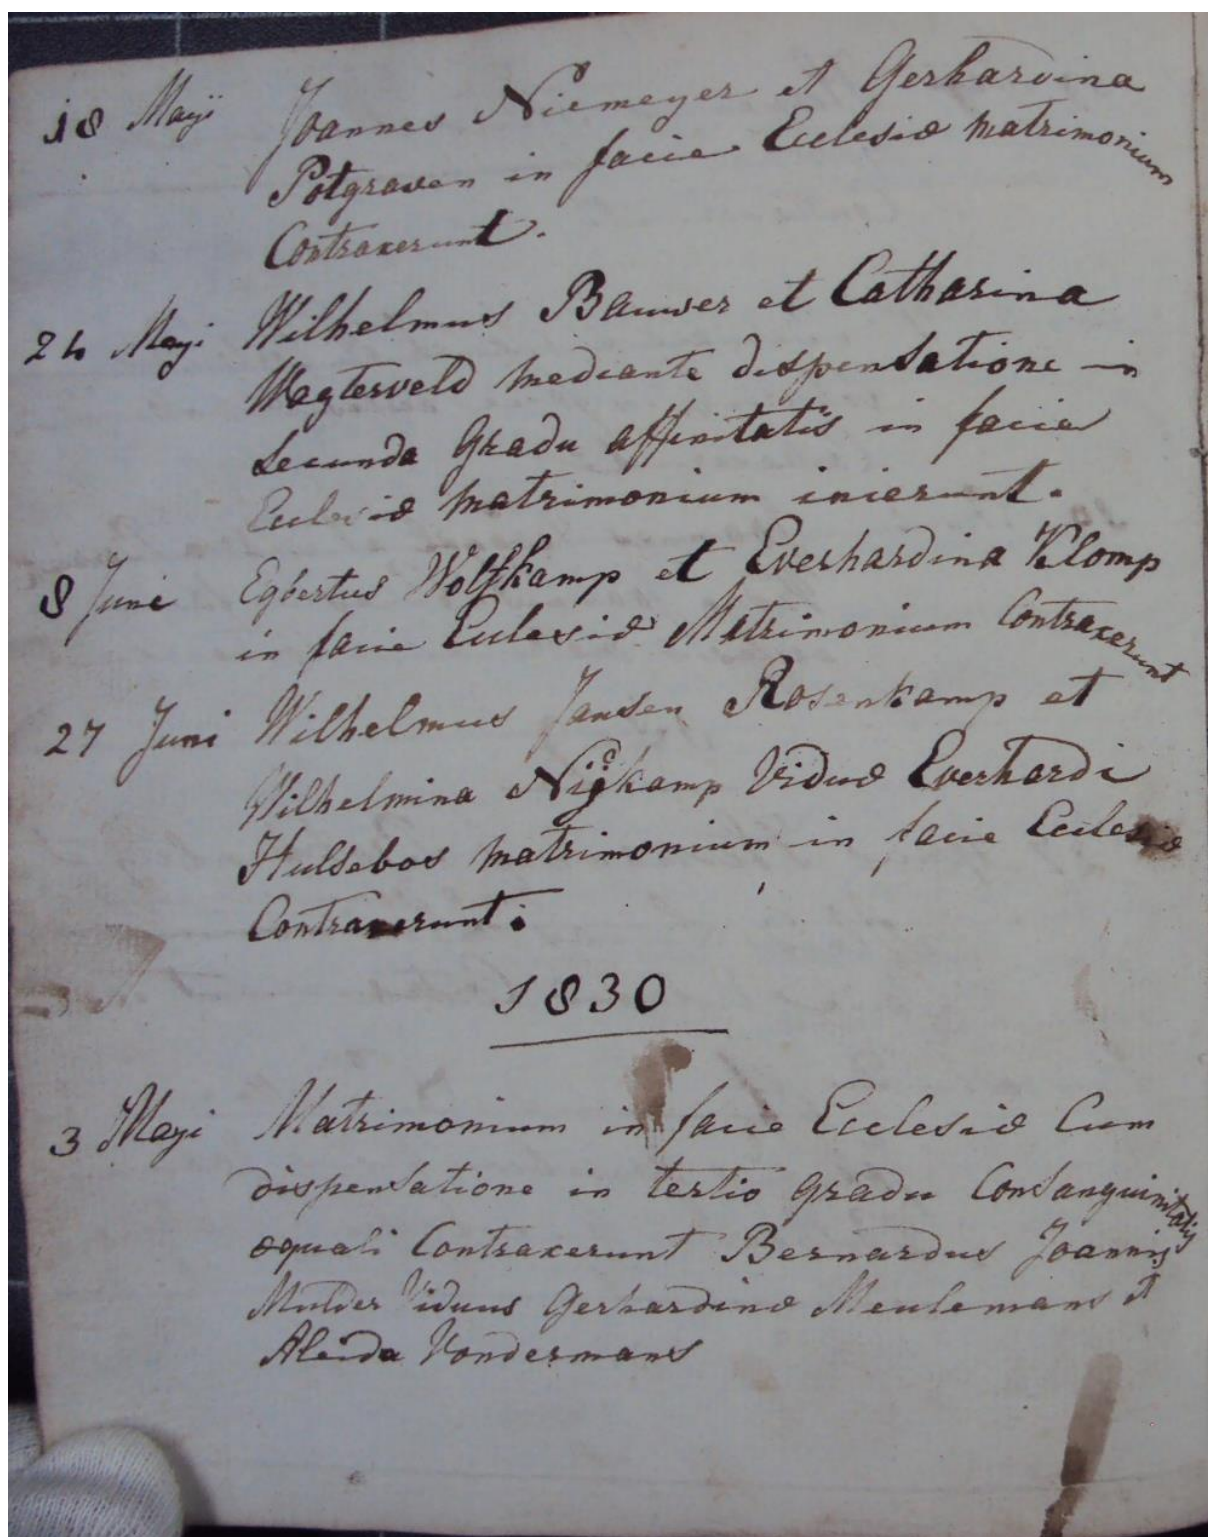 18 Maji Joannes Niemeyer et Gerhardina
Potgraven in facie Ecclesiæ matrimonium
Contraxerunt.
24 Mayi Wilhelmus Bauwer et Catharina
Wegterveld mediante dispensatione in
secunda gradu affinitatis in facie
Eclesiæ matrimonium inierunt.
8 Juni Egbertus Wolfkamp et Everhardina Klomp
in facie Eclesiæ Matrimonium Contraxerunt
27 Juni Wilhelmus Jansen Rosenkamp et
Wilhelmina Viduæ Everhardi
Hulsebos matrimonium in facie Ecclesiæ
Contraxerunt.
1830
3 Mayi Matrimonium in facie Ecclesiæ Cum
dispensatione in tertio gradu Consanguinitatis
æquali Contraxerunt Bernardus Joannis
Mulder Viduus Gerhardinæ Meulemans et
Aleida Vondermans